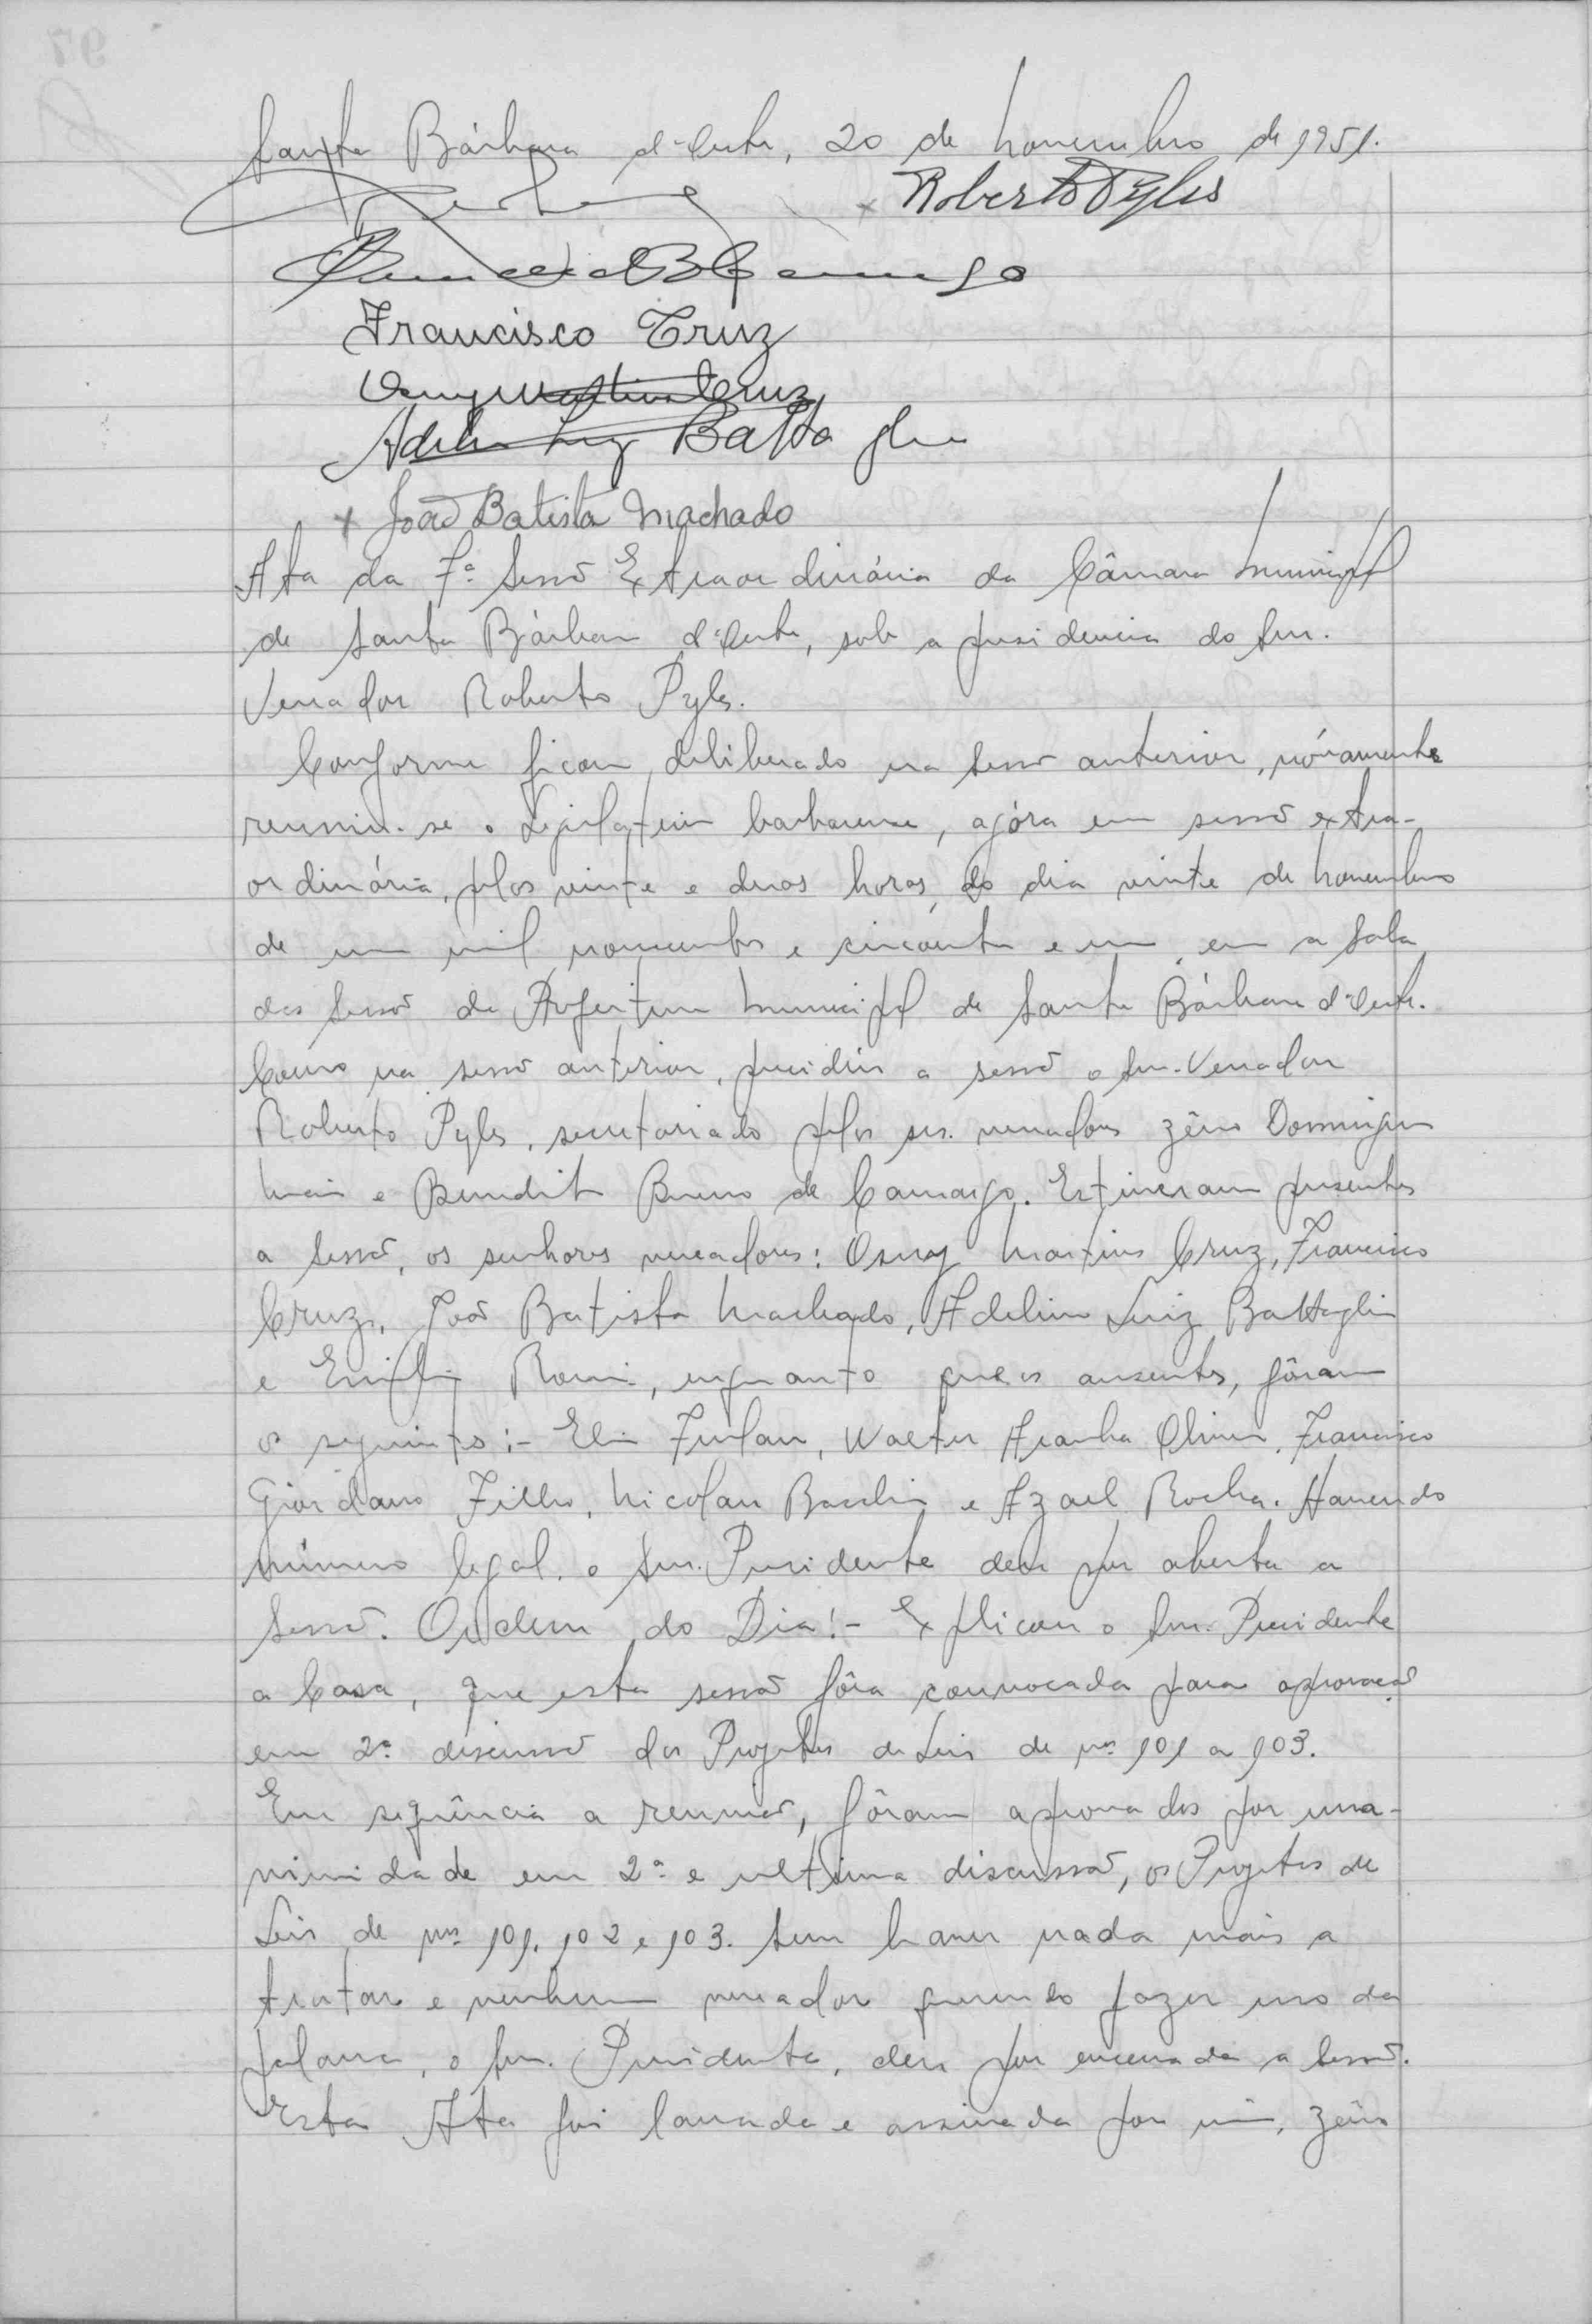 Santa Bárbara d'Oeste, 20 de Novembro de 1951.
x Roberto Pyles
Benedicto B Camargo
Francisco Cruz
Osny Martins Cruz
Adelino Luiz Battaglia
x João Batista Machado
Ata da 7ª Sessão Extraordinária da Câmara Municipal
de Santa Bárbara d'Oeste, sob a presidencia do Snr.
Vereador Roberto Pyles.
Conforme ficou deliberado na Sessão anterior, nóvamente
reuniu-se o Legislativo barbarense, agóra em sessão extra-
ordinária, pelas vinte e duas horas, do dia vinte de Novembro
de um mil novecentos e cincoenta e um, em a Sala
das Sessões da Prefeitura Municipal de Santa Bárbara d'Oeste.
Como na sessão anterior, presidiu a sessão o Snr. Vereador
Roberto Pyles, secretariado pelos srs. vereadores Zêno Domingues
Maia e Benedito Bueno de Camargo. Estiveram presentes
a Sessão, os senhores vereadores: Osny Martins Cruz, Francisco
Cruz, João Batista Machado, Adelino Luiz Battaglia
e Emilio Romi, enquanto que os ausentes, fôram
os seguintes:- Elio Furlan, Walter Aranha Oliveira, Francisco
Giordano Filho, Nicolau Bacchin e Azael Rocha. Havendo
número legal, o Snr. Presidente deu por aberta a
Sessão. Ordem do Dia:- Explicou o Snr. Presidente
a Casa, que esta sessão fôra convocada para aprovação
em 2ª discussão dos Projetos de Leis de nºs 101 a 103.
Em seqüência a reunião, fôram aprovados por una-
nimidade em 2ª e ultima discussão, os Projetos de
Leis de nºs 101, 102 e 103. Sem haver nada mais a
tratar e nenhum vereador querendo fazer uso da
palavra, o Snr. Presidente, deu por encerrada a Sessão.
Esta Ata foi lavrada e assinada por mim, Zêno